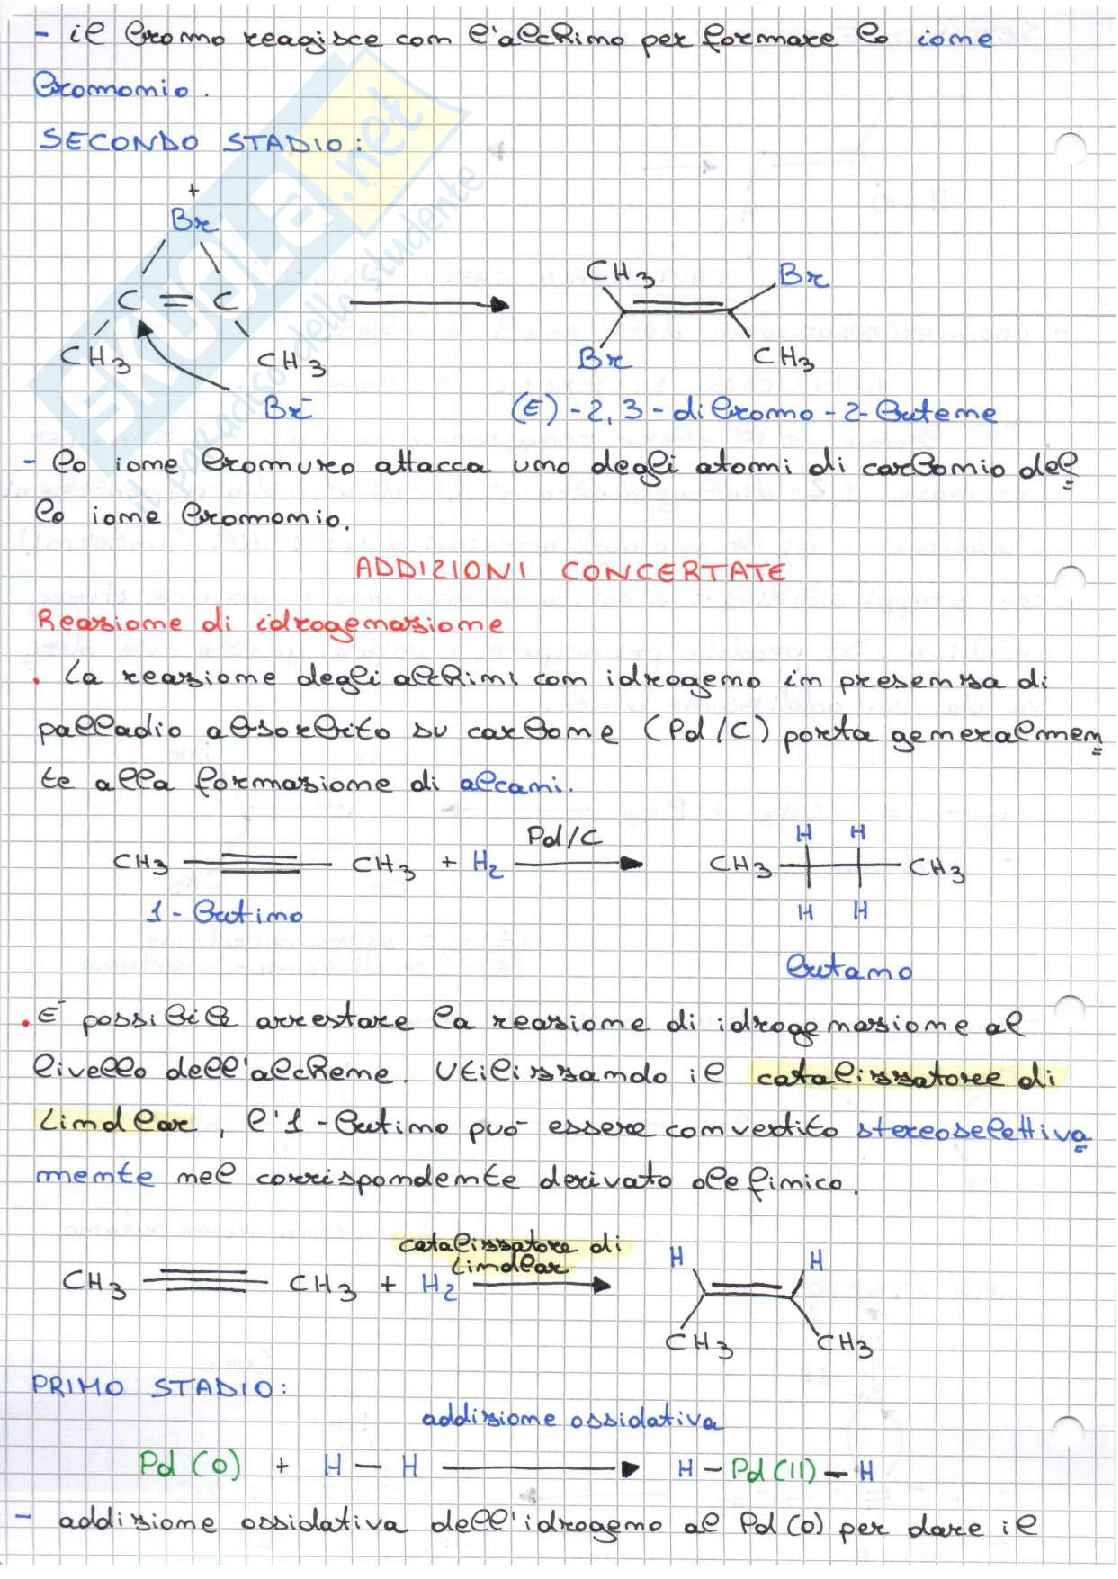 - il bromo reagisce con l'alchino per formare lo ione
bromonio.
SECONDO STADIO:
+
Br
C = C
CH3 CH3
Br-
CH3 Br
Br CH3
(E)-2,3-dibromo-2-butene
- lo ione bromuro attacca uno degli atomi di carbonio del
lo ione bromonio.
ADDIZIONI CONCERTATE
Reazione di idrogenazione
. La reazione degli alchini con idrogeno in presenza di
palladio absorbito su carbone (Pd/C) porta generalmen
te alla formazione di alcani.
CH3 CH3 + H2 Pd/C CH3 H H H H CH3
1-butino
butano
. E' possibile arrestare la reazione di idrogenazione al
livello dell'alchene. Utilizzando il catalizzatore di
Lindlar, l'1-butino può essere convertito stereoselettiva
mente nel corrispondente derivato olefinico.
catalizzatore di
Lindlar
CH3 CH3 + H2 H H
CH3 CH3
PRIMO STADIO:
addizione ossidativa
Pd(0) + H-H H-Pd(II)-H
- addizione ossidativa dell'idrogeno al Pd(0) per dare il
SKUOLA.net
il paradiso dello studente